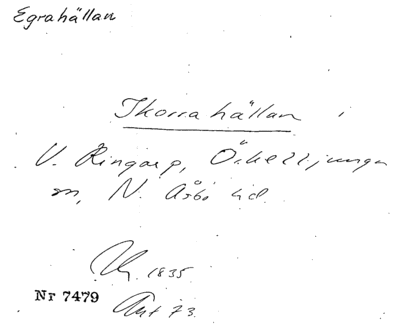 Egrahällan
Ikorrahällan
V. Ringarp, Örkelljunga
sn, N. Åsbo hd.
1835
Nr 7479
Ant 73.